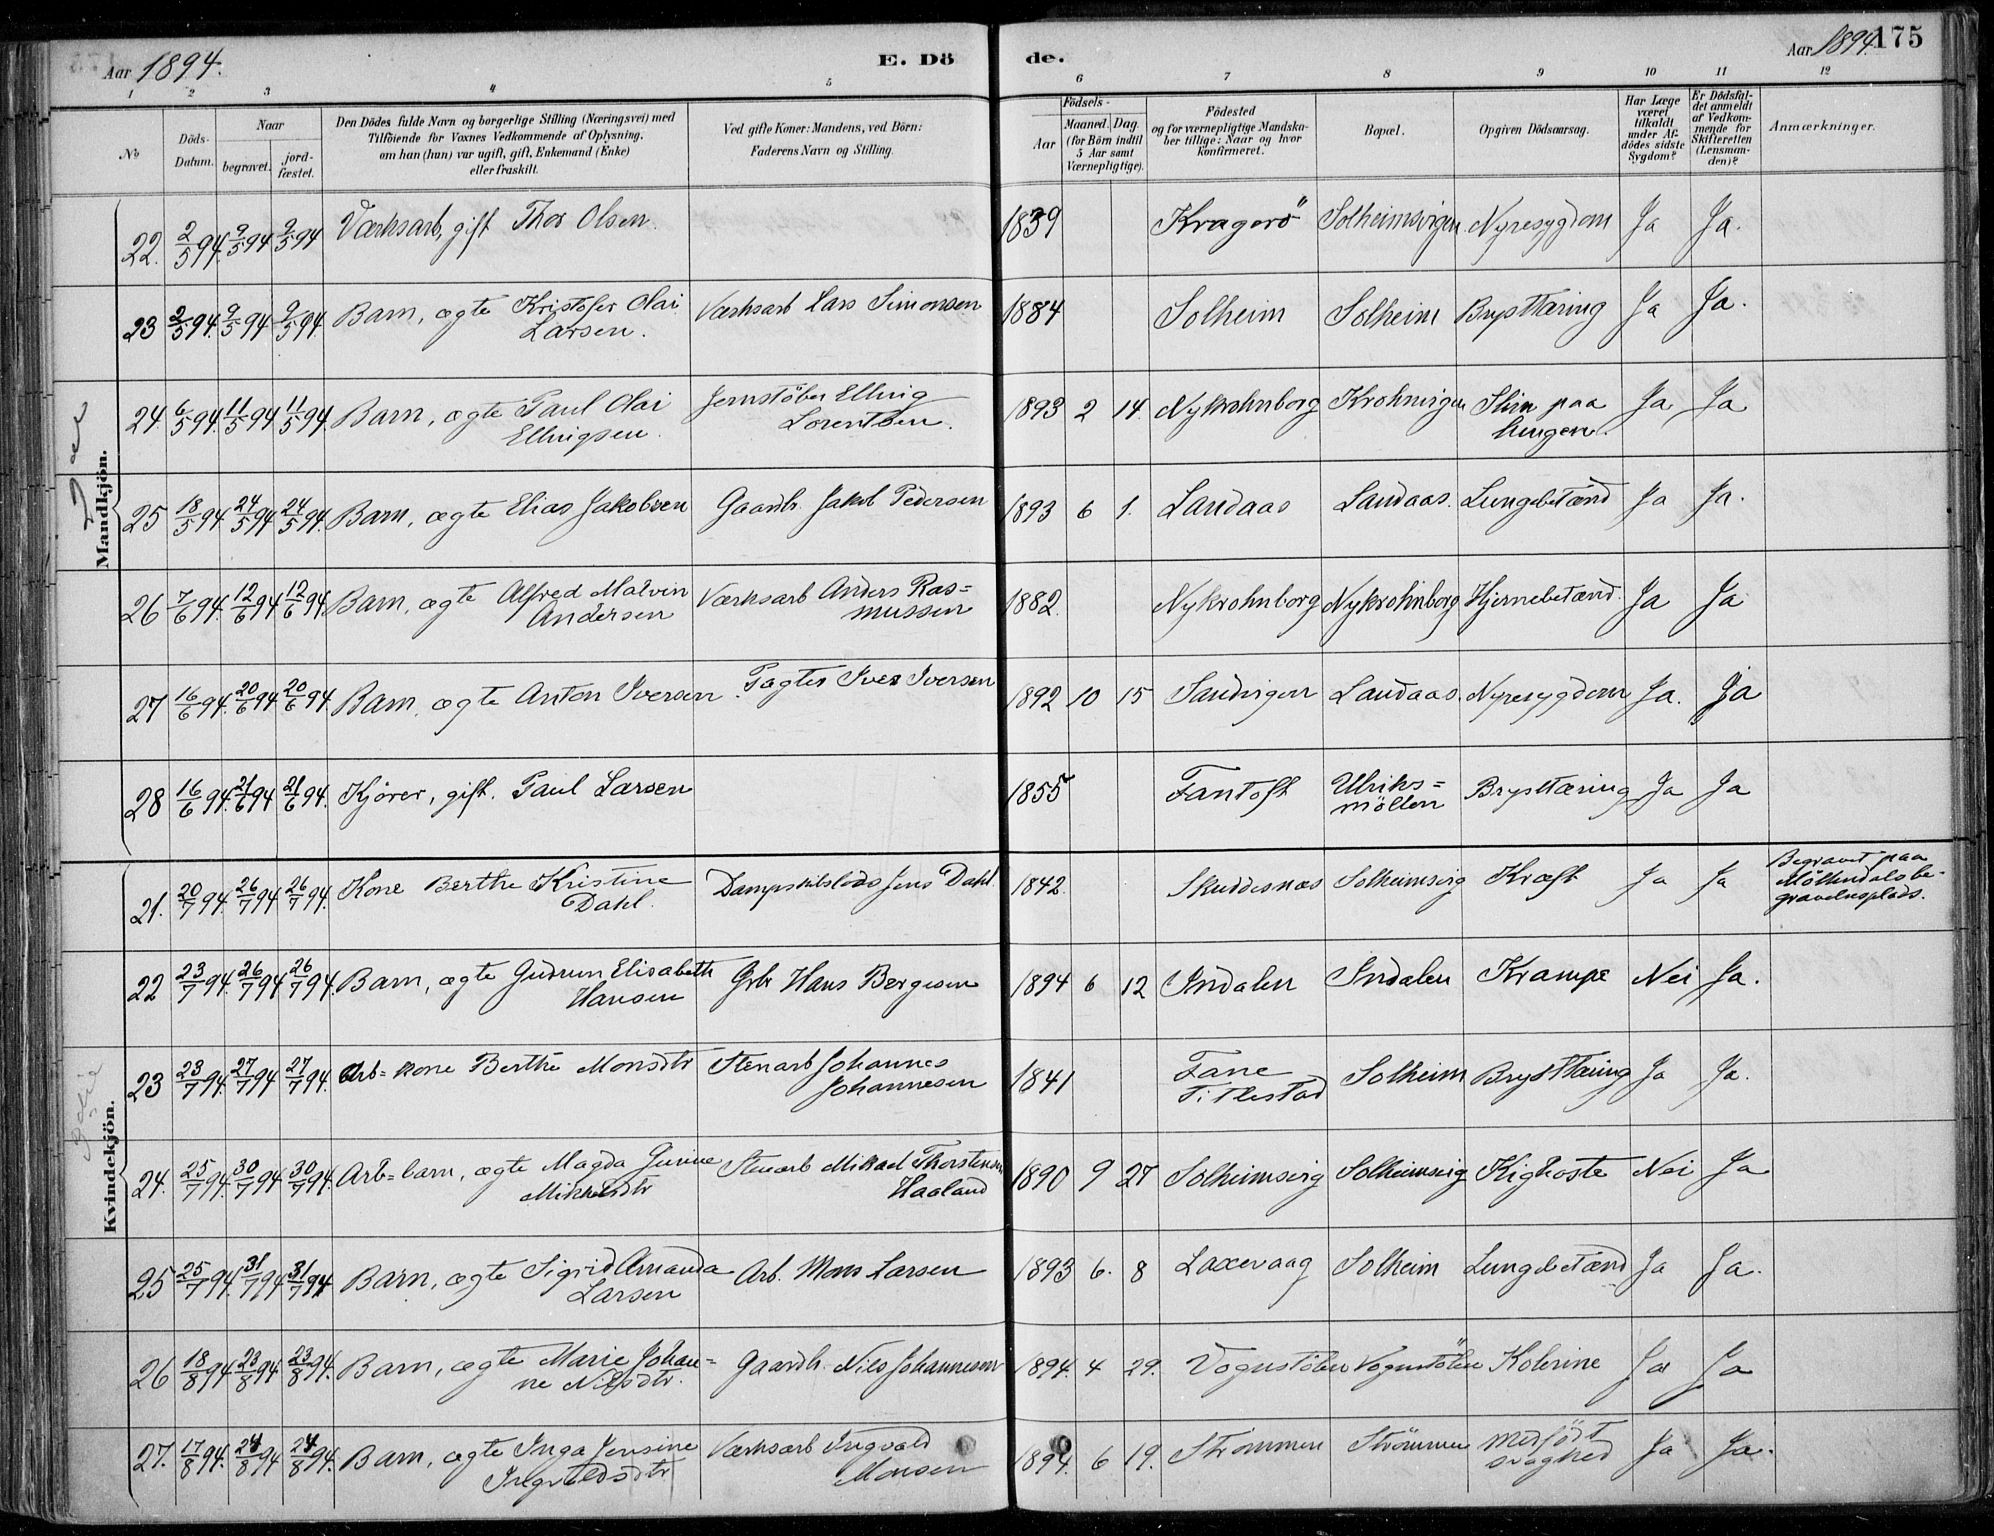 Aar 1894.
E. Dö
de.
Aar 1894.
175
1 2 3 4 5 6 7 8 9 10 11 12
No
Döds-Datum.
Naar
begravet.
jord-fæstet.
Den Dödes fulde Navn og borgerlige Stilling (Næringsvei) med
Tilföiende for Voxnes Vedkommende af Oplysning,
om han (hun) var ugift, gift, Enkemand (Enke)
eller fraskilt.
Ved gifte Koner: Mandens, ved Börn:
Faderens Navn og Stilling.
Födsels-
Aar
Maaned. Dag.
(for Börn indtil
5 Aar samt
Værnepligtige).
Födested
og for værnepligtige Mandska-
ber tillige: Naar og hvor
konfirmeret.
Bopæl.
Opgiven Dödsaarsag.
Har Læge
været
tilkaldt
under Af-
dödes sidste
Sygdom?
Er Dödsfal-
det anmeldt
af Vedkom-
mende for
Skifteretten
(Lensman-
den)?
Anmærkninger.
Mandkjön.
22. 2/5 94. 9/5 94 9/5 94 Værksarb, gift Thor Olsen. 1839 Kragerö Solheimsvigen Nyresygdom Ja Ja.
23 2/5 94. 9/5 94 9/5 94. Barn, ægte Kristofer Olai Værksarb Lars Simonsen 1884 Solheim Solheim Brysttæring Ja Ja.
Larsen.
24. 6/5 94. 11/5 94 11/5 94. Barn, ægte Paul Olai Jernstöber Elling 1893 2 14. Nykrohnborg Krohnvigen Slim paa Ja Ja
Ellingsen. Lorentsen. lungen.
25 18/5 94. 24/5 94 24/5 94. Barn, ægte Elias Jakobsen Gaardb. Jakob Pedersen 1893 6 1. Landaas Landaas. Lungebetænd Ja Ja.
26 7/6 94. 12/6 94 12/6 94. Barn, ægte Alfred Malvin Værksarb Anders Ras= 1882. Nykrohnborg Nykrohnborg Hjernebetænd. Ja Ja
Andersen mussen
27 16/6 94. 20/6 94 20/6 94. Barn, ægte Anton Iversen Pagter Iver Iversen 1892 10 15 Sandvigen Landaas Nyresygdom Ja. Ja
28 16/6 94. 21/6 94 21/6 94. Kjörer, gift. Paul Larsen 1855 Fantoft Ulriks= Brysttæring Ja Ja
möllen
Kvindekjön.
21. 20/7 94. 26/7 94 26/7 94. Kone Berthe Kristine Dampskibslods Jens Dahl. 1842. Skudesnæs Solheimsvig Kræft Ja Ja Begravet paa
Dahl. Möllendals be-
gravelsesplads.
22 23/7 94. 26/7 94 26/7 94. Barn, ægte Gudrun Elisabeth Gbr Hans Bergesen 1894 6 12 Indalen Indalen Krampe Nei Ja.
Hansen
23 23/7 94. 27/7 94 27/7 94. Arb=kone Berthe Monsdtr Stenarb Johannes 1841 Fane Solheim Brysttæring Ja Ja.
Johannesen Titlestad
24. 25/7 94. 30/7 94 30/7 94. Arb=barn, ægte Magda Gurine Stenarb Mikael Thorstensen 1890 9 27 Solheimsvig Solheimsvig Kighoste Nei Ja
Mikkelsdtr Haaland
25 25/7 94. 31/7 94 31/7 94 Barn, ægte Sigrid Amanda Arb. Mons Larsen 1893 6. 8 Laxevaag Solheim Lungebetænd Ja Ja.
Larsen
26 18/8 94 23/8 94 23/8 94. Barn, ægte Marie Johan= Gaardb. Nils Johannesen 1894. 4 29. Vognstölen Vognstölen Kolerine Ja Ja
ne Nilsdtr.
27. 17/8 94. 24/8 94 24/8 94. Barn, ægte Inga Jensine Værksarb Ingvald 1894. 6 19. Strömmen Strömmen Medfödt Ja Ja.
Ingvaldsdtr Monsen svaghed